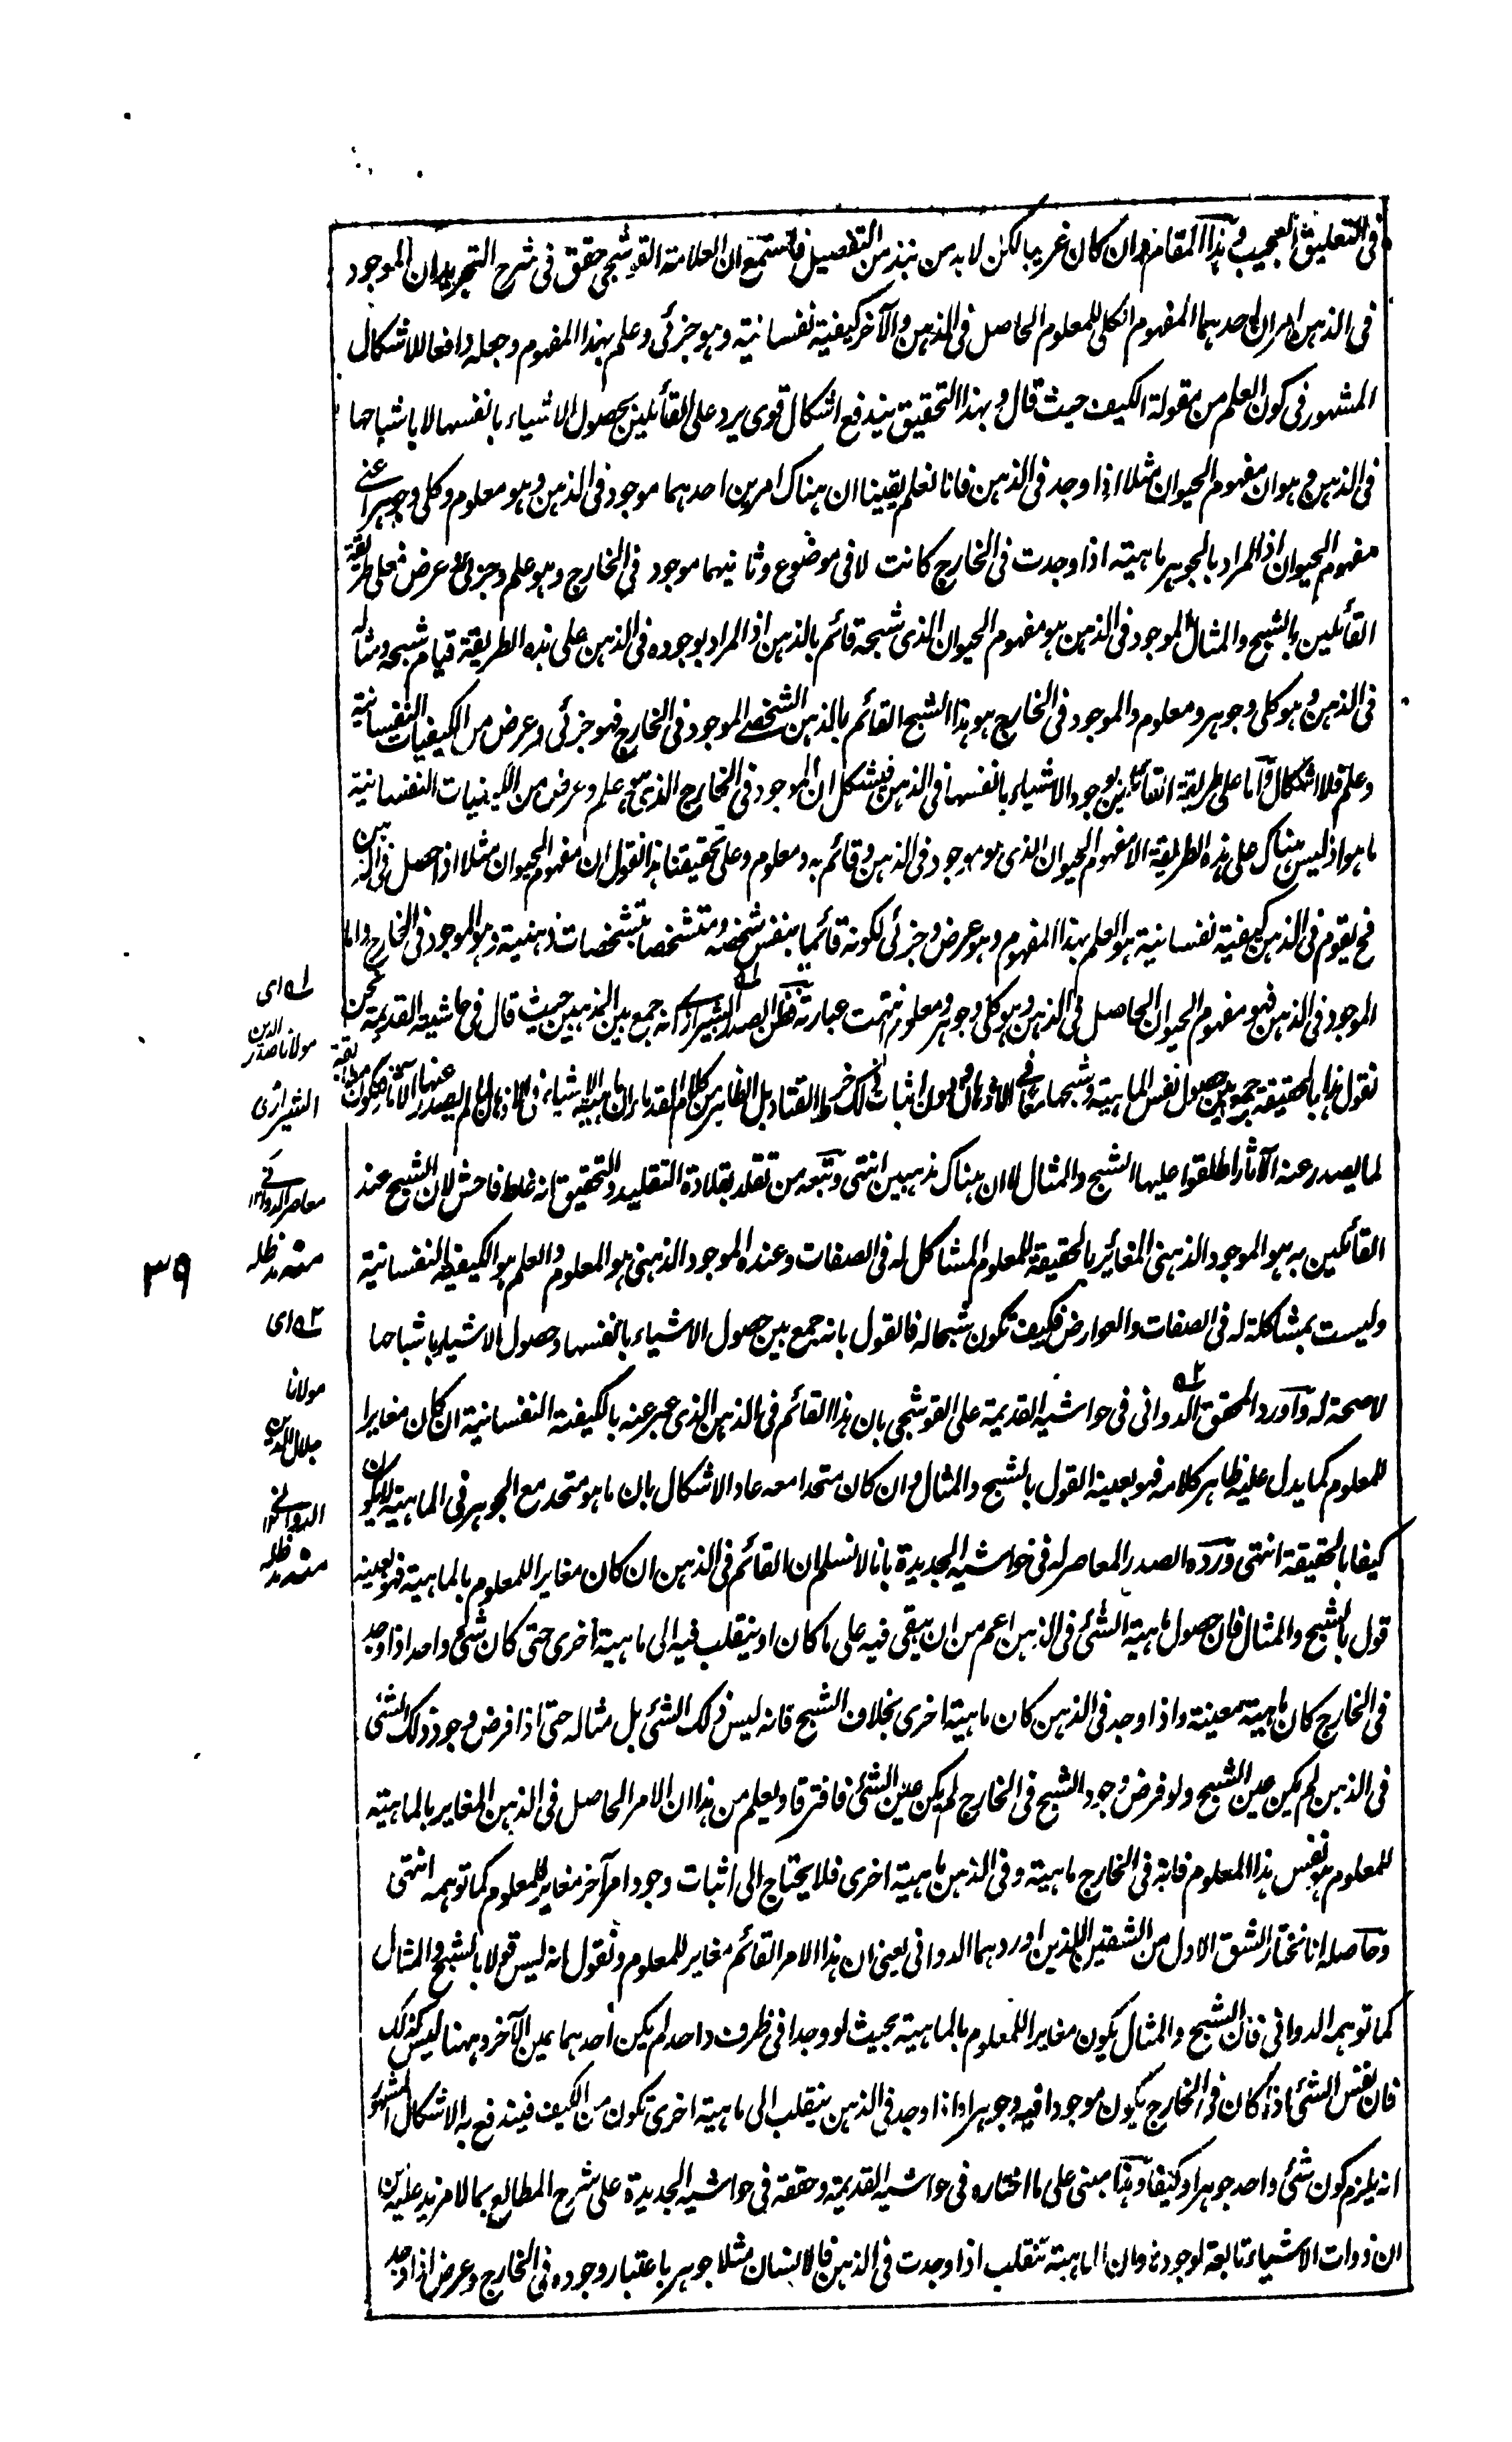 فى التعليق العجيب فى هذا المقام وان كان غريبا لكن لا بد من نبذ من التفصيل فاستمع ان العلامة القوشجى حقق فى شرح التجريد ان الموجود
فى الذهن امران احدهما المفهوم الكلى للمعلوم الحاصل فى الذهن والآخر كيفية نفسانية وهو جزئى وعلم بهذا المفهوم وجعله دافعا للاشكال
المشهور فى كون العلم من مقولة الكيف حيث قال وبهذا التحقيق يندفع اشكال قوى يرد على القائلين بحصول الاشياء بانفسها لا باشباحها
فى الذهن وهو ان مفهوم الحيوان مثلا اذا وجد فى الذهن فانا نعلم يقينا ان هناك امرين احدهما موجود فى الذهن وهو معلوم وكلى وجوهر اعنى
مفهوم الحيوان اذ المراد بالجوهر ماهية اذا وجدت فى الخارج كانت لا فى موضوع وثانيهما موجود فى الخارج وهو علم وجزئى وعرض فعلى طريقة
القائلين بالشبح والمثال الموجود فى الذهن هو مفهوم الحيوان الذى شبحه قائم بالذهن اذ المراد بوجوده فى الذهن على هذه الطريقة قيام شبحه ومثاله
فى الذهن وهو كلى وجوهر ومعلوم والموجود فى الخارج هو هذا الشبح القائم بالذهن الشخصى الموجود فى الخارج فهو جزئى وعرض من الكيفيات النفسانية
وعلم فلا اشكال واما على طريقة القائلين بوجود الاشياء بانفسها فى الذهن فيشكل ان الموجود فى الخارج الذى هو علم وعرض من الكيفيات النفسانية
ما هو اذ ليس هناك على هذه الطريقة الا مفهوم الحيوان الذى هو موجود فى الذهن وقائم به ومعلوم وعلى تحقيقنا هذا نقول ان مفهوم الحيوان مثلا اذا حصل فى الذهن
فح يقوم فى الذهن كيفية نفسانية هو العلم بهذا المفهوم وهو عرض وجزئى لكونه قائما بنفس شخصه ومتشخصا بتشخصات ذهنية وهو الموجود فى الخارج واما
الموجود فى الذهن فهو مفهوم الحيوان الحاصل فى الذهن وهو كلى وجوهر ومعلوم انتهت عبارته فظن الصدر الشيرازى انه جمع بين المذهبين حيث قال فى حاشيته القديمة نحن
نقول هذا بالحقيقة جمع بين حصول نفس الماهية وشبحها معا فى الاذهان ودون اثبات ذلك خرط القتاد بل الظاهر من كلام القدماء ان ماهية الاشياء فى الاذهان لم يصدر عنها الآثار فيكون مطابقة
لما يصدر عنه الآثار اطلقوا عليها الشبح والمثال لا ان هناك مذهبين انتهى وتبعه من تقلد بقلادة التقليد والتحقيق انه غلط فاحش لان الشبح عند
القائلين به هو الموجود الذهنى المغائر بالحقيقة للمعلوم المشاكل له فى الصفات وعنده الموجود الذهنى هو المعلوم والعلم هو الكيفية النفسانية
وليست بمشاكلة له فى الصفات والعوارض فكيف تكون شبحا له فالقول بانه جمع بين حصول الاشياء بانفسها وحصول الاشياء باشباحها
لا صحة له وآورد المحقق الدوانى فى حواشيه القديمة على القوشجى بان هذا القائم فى الذهن الذى عبر عنه بالكيفية النفسانية ان كان مغايرا
للمعلوم كما يدل عليه ظاهر كلامه فهو بعينه القول بالشبح والمثال وان كان متحدا معه عاد الاشكال بان ما هو متحد مع الجوهر فى الماهية لا يكون
كيفا بالحقيقة انتهى ورده الصدر المعاصر له فى حواشيه الجديدة بانا لا نسلم ان القائم فى الذهن ان كان مغايرا للمعلوم بالماهية فهو بعينه
قول بالشبح والمثال فان حصول ماهية الشئ فى الذهن اعم من ان يبقى فيه على ما كان او ينقلب فيه الى ماهية اخرى حتى كان شئ واحد اذا وجد
فى الخارج كان ماهية معينة واذا وجد فى الذهن كان ماهية اخرى بخلاف الشبح فانه ليس ذلك الشئ بل مثاله حتى اذا فرض وجود ذلك الشئ
فى الذهن لم يكن عين الشبح ولو فرض وجود الشبح فى الخارج لم يكن عين الشئ فافترقا ويعلم من هذا ان الامر الحاصل فى الذهن المغاير بالماهية
للمعلوم هو نفس هذا المعلوم فانه فى الخارج ماهية وفى الذهن ماهية اخرى فلا يحتاج الى اثبات وجود امر آخر مغاير للمعلوم كما توهمه انتهى
وحاصله انا نختار الشق الاول من الشقين اللذين اوردهما الدوانى يعنى ان هذا الامر القائم مغاير للمعلوم ونقول انه ليس قولا بالشبح والمثال
كما توهمه الدوانى فان الشبح والمثال يكون مغايرا للمعلوم بالماهية بحيث لو وجدا فى ظرف واحد لم يكن احدهما عين الآخر وههنا ليس كذلك
فان نفس الشئ اذا كان فى الخارج يكون موجودا فيه وجوهرا واذا وجد فى الذهن ينقلب الى ماهية اخرى تكون من الكيف فيندفع به الاشكال المشهور
انه يلزم كون شئ واحد جوهرا وكيفا وهذا مبنى على ما اختاره فى حواشيه القديمة وحققه فى حواشيه الجديدة على شرح المطالع بما لا مزيد عليه من
ان ذوات الاشياء تابعة لوجودها وان الماهية تنقلب اذا وجدت فى الذهن فالانسان مثلا جوهر باعتبار وجوده فى الخارج وعرض اذا وجد
١ه اى
مولانا صدر الدين
الشيرازى
معاصر الدوانى ١٢
منه مد ظله
٢ه اى
مولانا
جلال الدين
الدوانى ١٢
منه مد ظله
٣٩